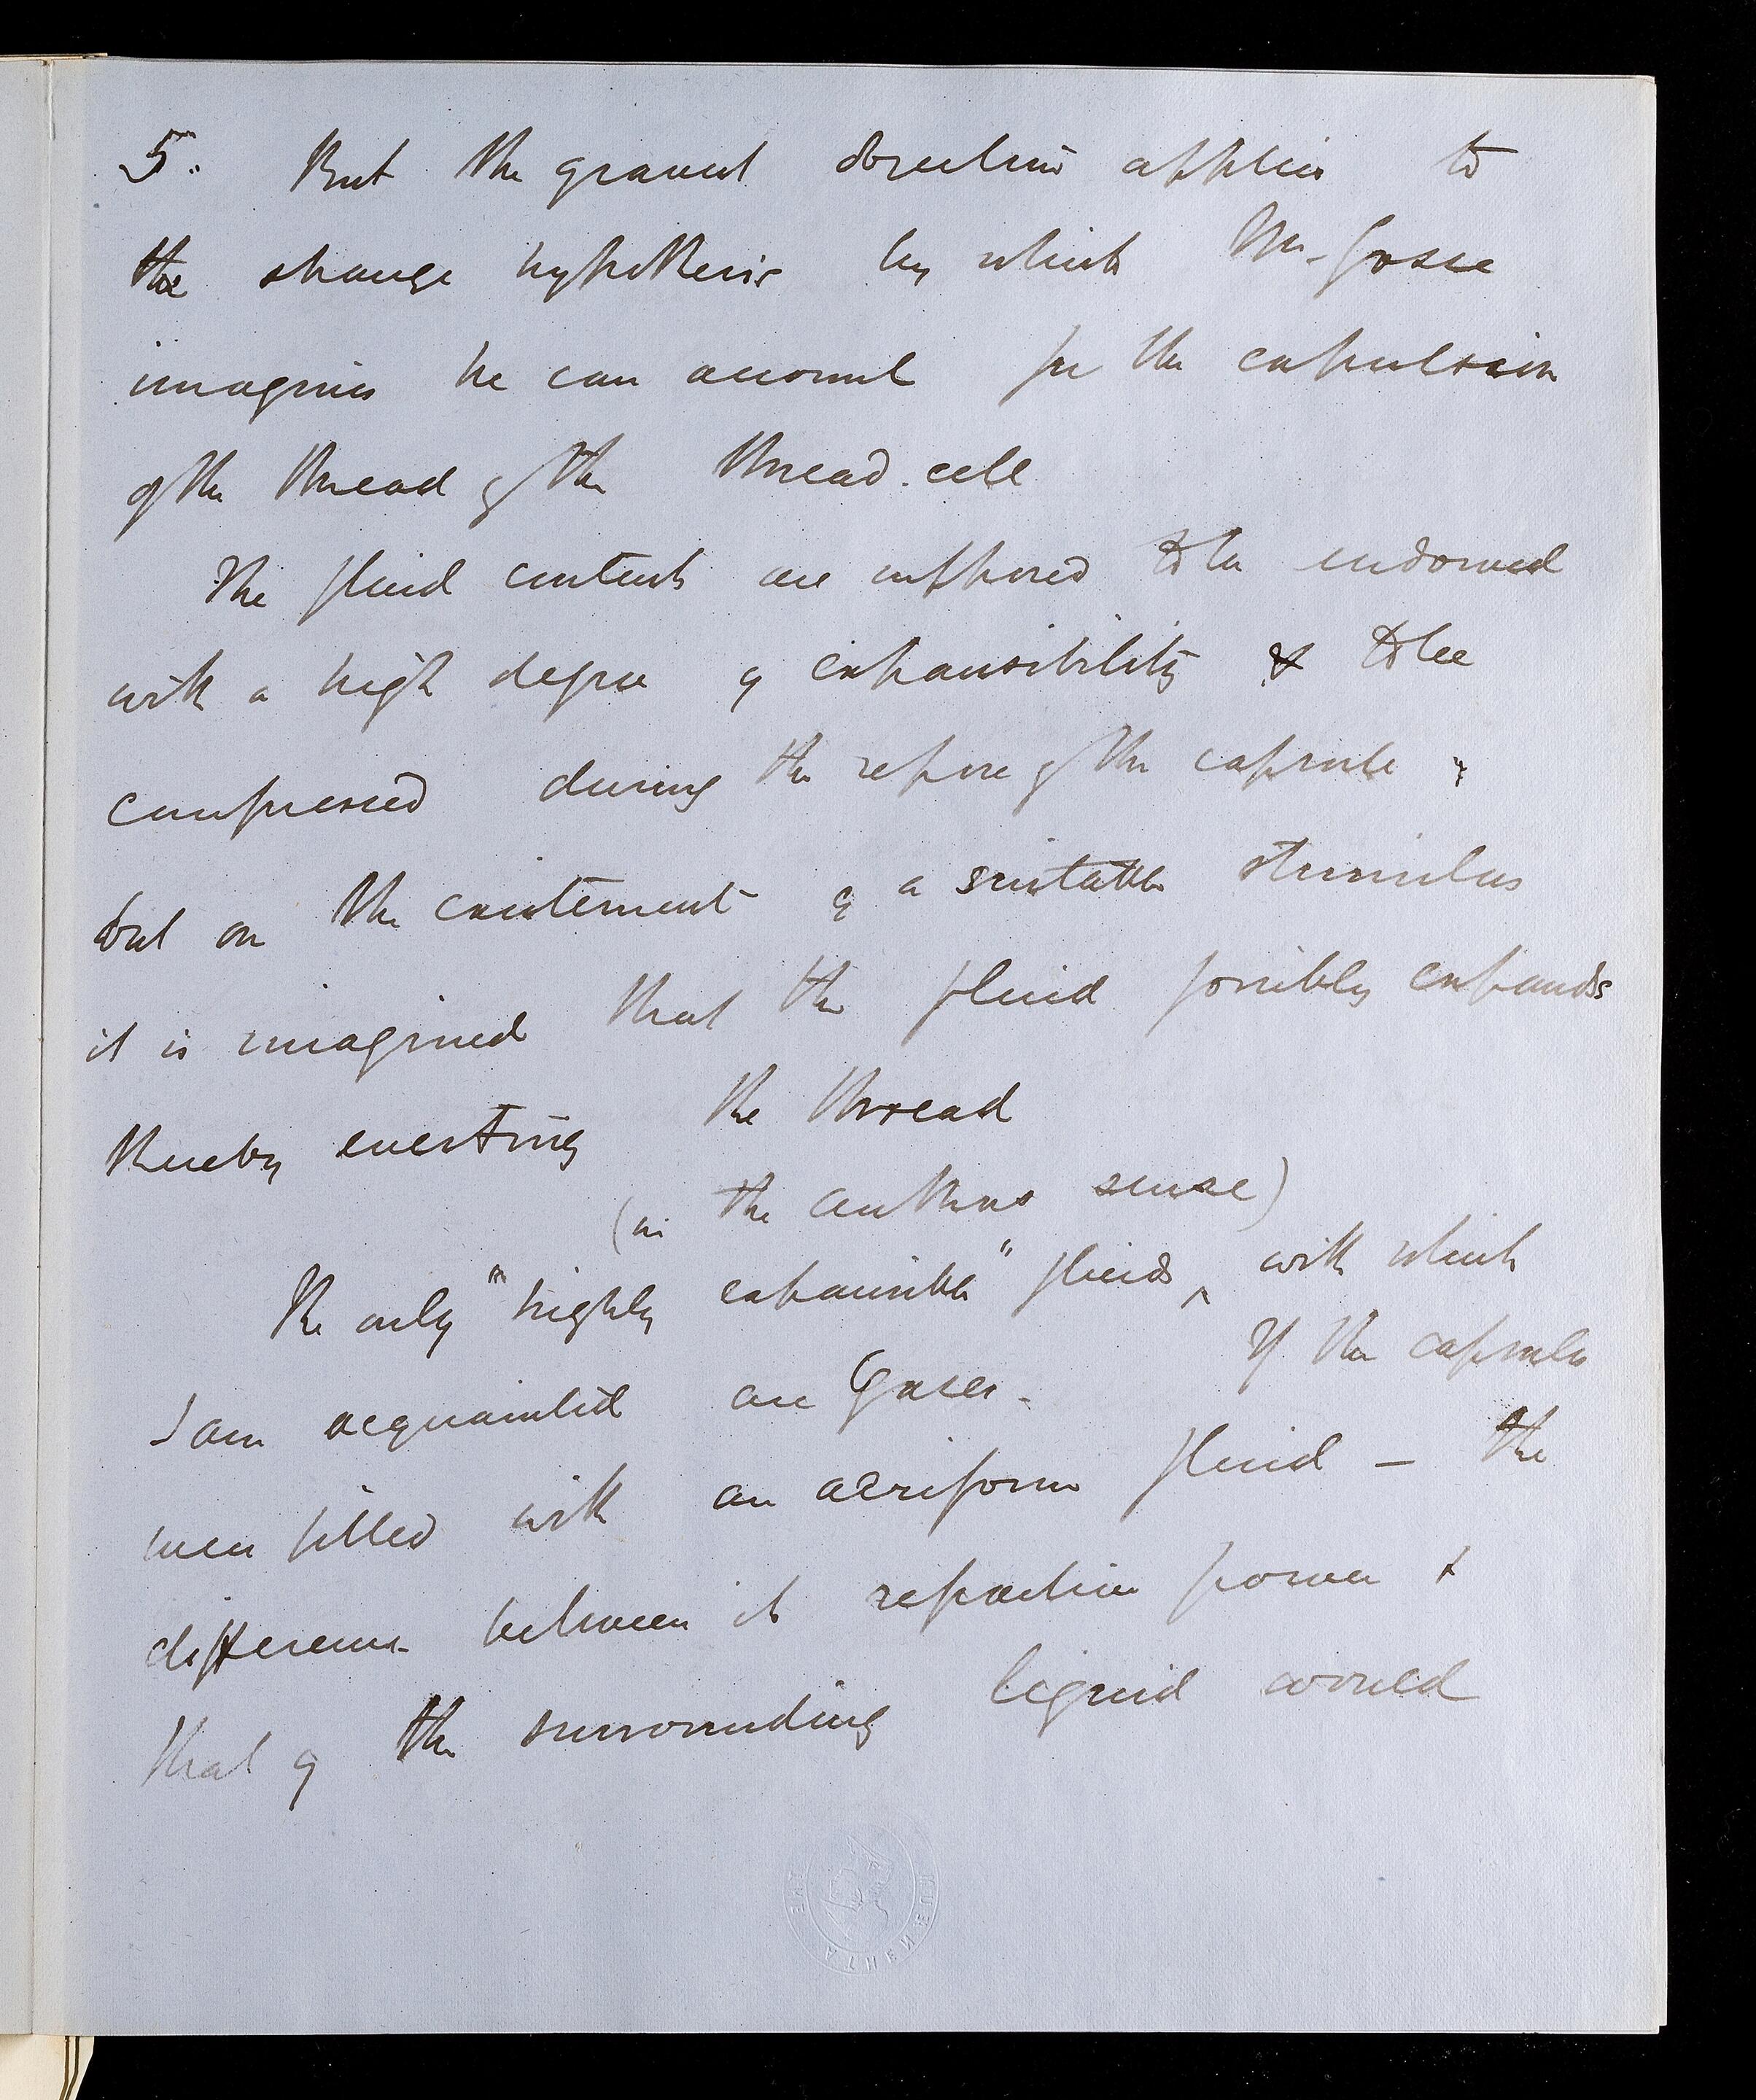 5. But the gravest objection applies to
the strange hypothesis by which Mr. Gosse
imagines he can account for the expulsion
of the thread of the thread-cell
The fluid contents are supposed to be endowed
with a high degree of expansibility & to be
compressed during the repose of the capsule
but on the excitement of a suitable stimulus
it is imagined that the fluid forcibly expands
thereby everting the thread
(in the authors sense)
The only "highly expansible" fluids ‸ with which
I am acquainted are Gases. If the capsule
were filled with an aeriform fluid — the
difference between its refractive power &
that of the surrounding liquid would
THE ATHENÆUM